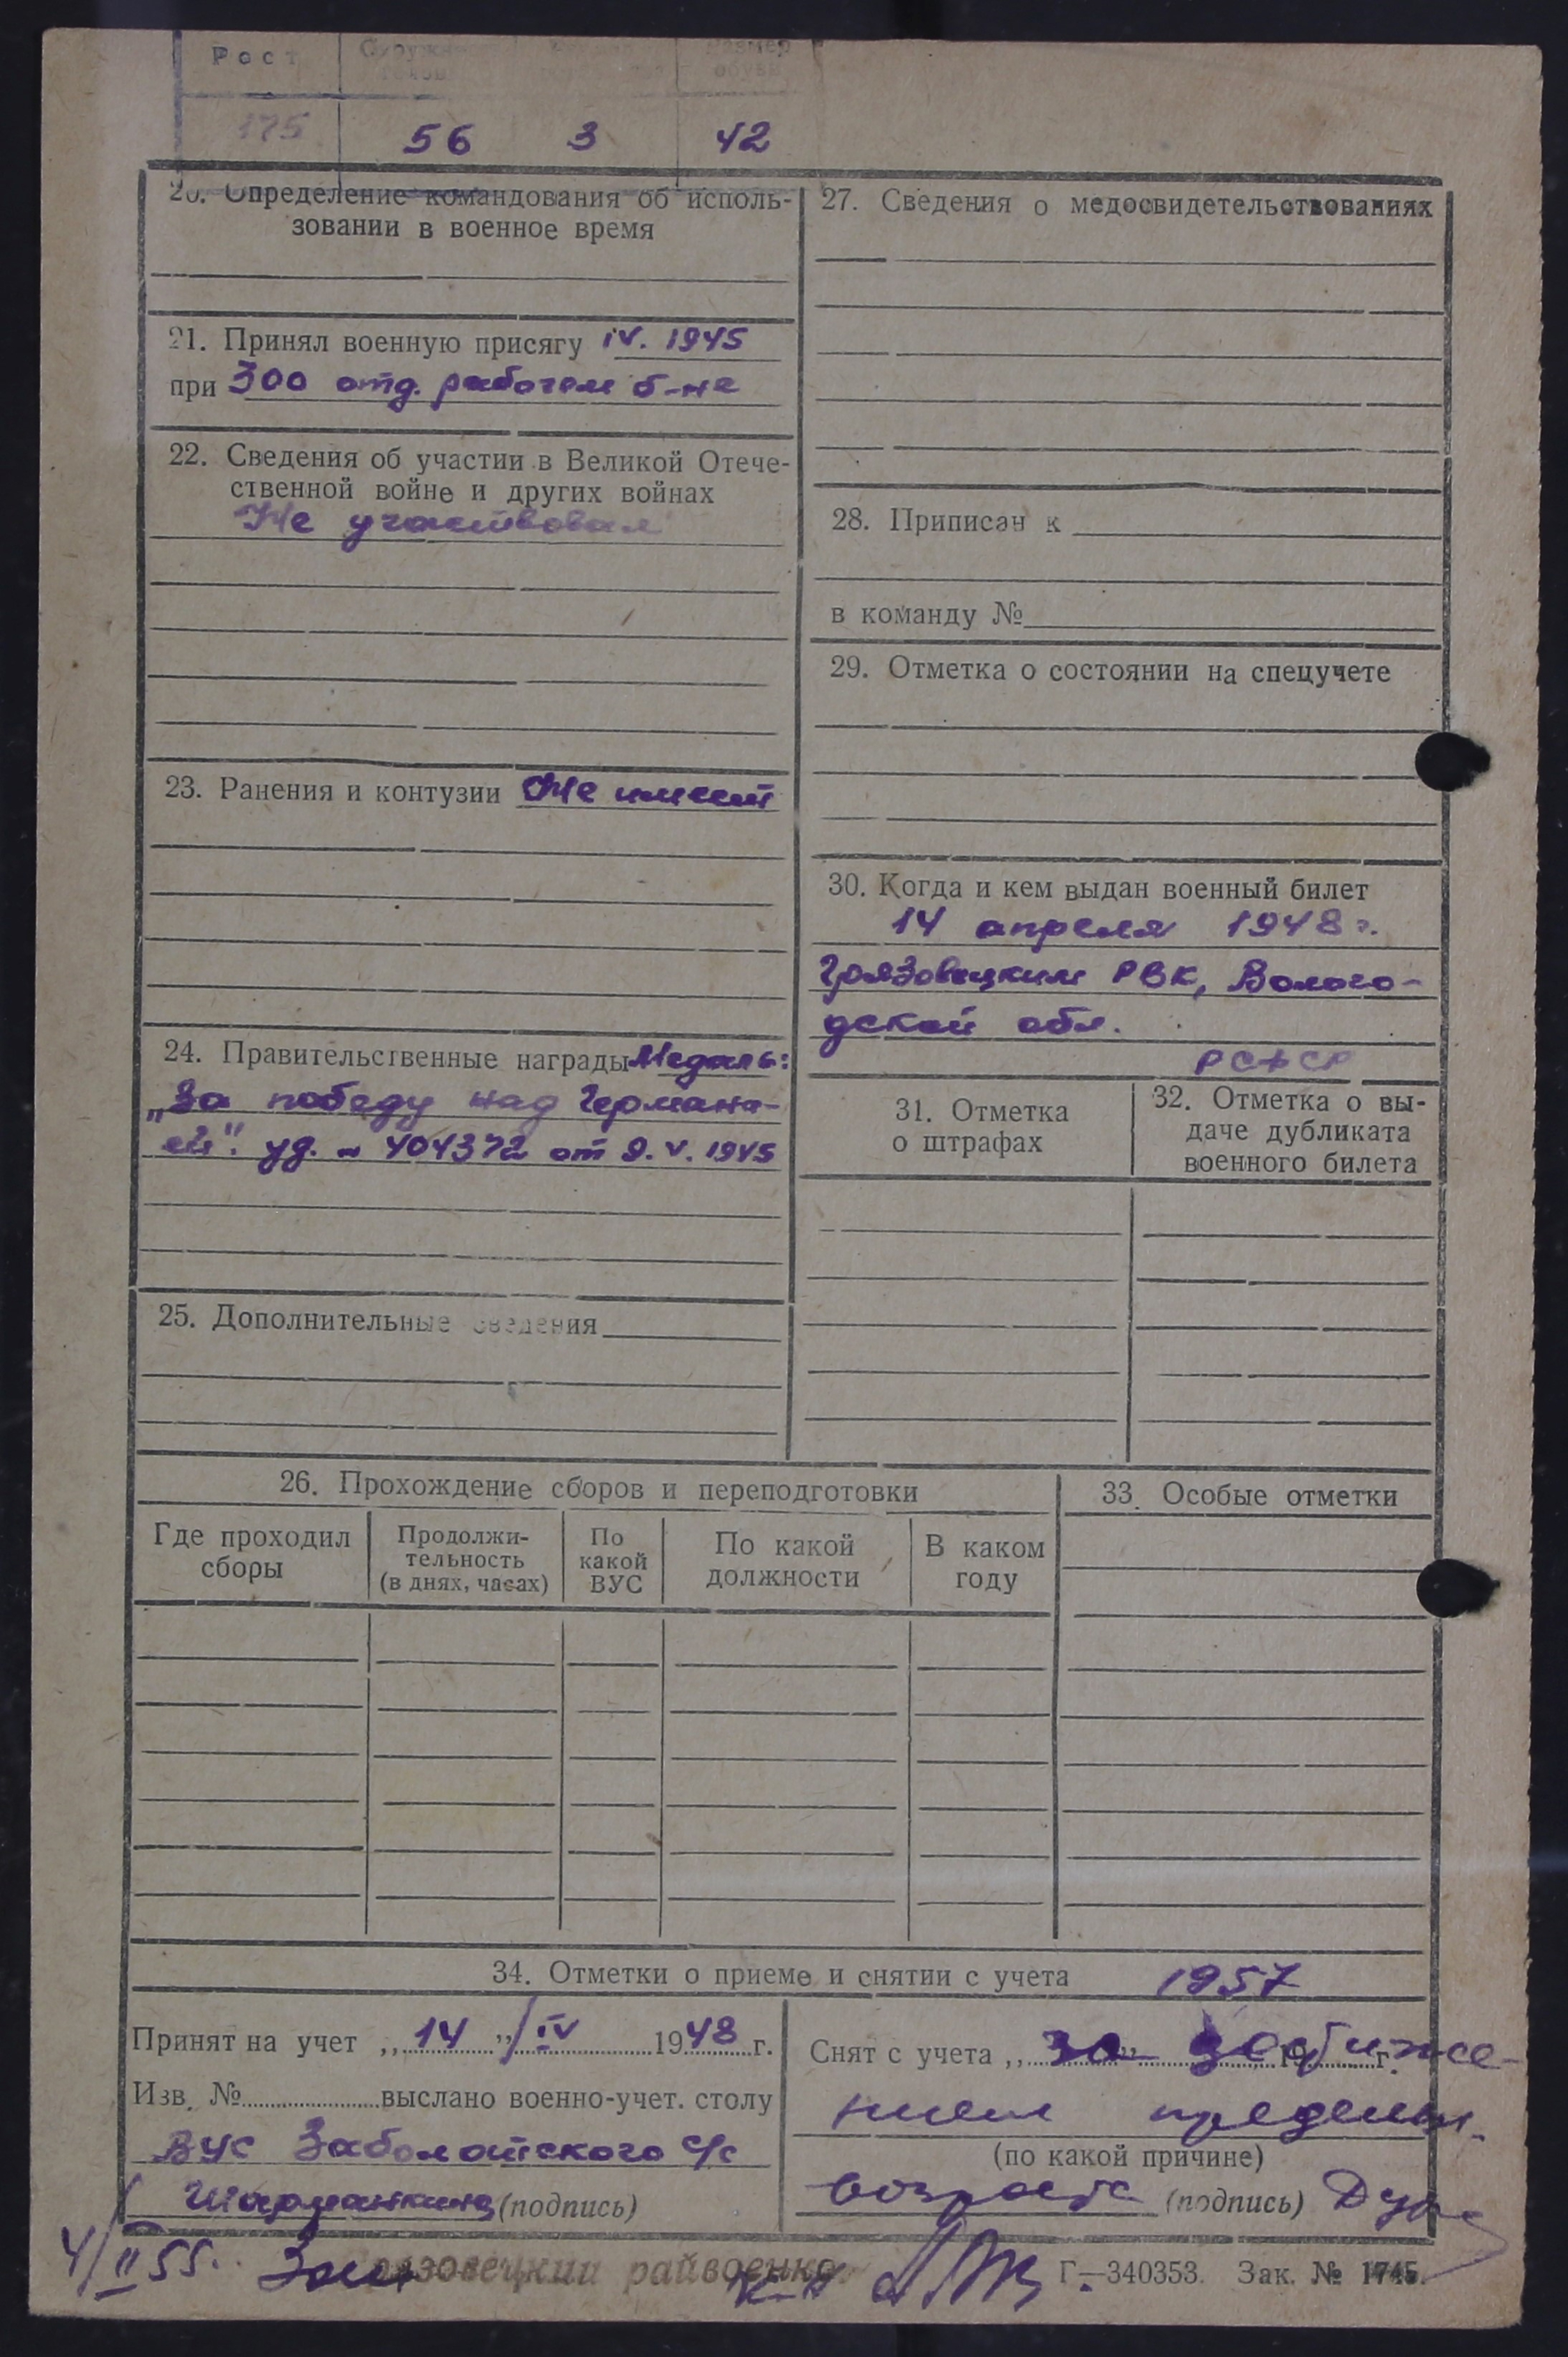 Рост
Размер
обуви
175 56 3 42
20. Определение командования об исполь-
зовании в военное время
21. Принял военную присягу IV. 1945
при 300 отд. рабочем б-не
22. Сведения об участии в Великой Отече-
ственной войне и других войнах
Не участвовал
23. Ранения и контузии Не имеет
24. Правительственные награды Медаль:
„За победу над Германи-
ей". уд. - 404372 от 9.V.1945
25. Дополнительные сведения
26. Прохождение сборов и переподготовки
Где проходил
сборы
Продолжи-
тельность
(в днях, часах)
По
какой
ВУС
По какой
должности
В каком
году
27. Сведения о медосвидетельствованиях
28. Приписан к
в команду №
29. Отметка о состоянии на спецучете
30. Когда и кем выдан военный билет
14 апреля 1948 г.
Грязовецким РВК, Волого-
дской обл.
РСФСР
31. Отметка
о штрафах
32. Отметка о вы-
даче дубликата
военного билета
33. Особые отметки
34. Отметки о приеме и снятии с учета 1957
Принят на учет „14" IV 1948 г.
Изв. № выслано военно-учет. столу
ВУС Заболотского с/с
(подпись)
Снят с учета „ " 19 г.
предельн.
(по какой причине)
возраста (подпись)
4/II 55.
Грязовецкий райвоенко
Г—340353. Зак. № 1745.